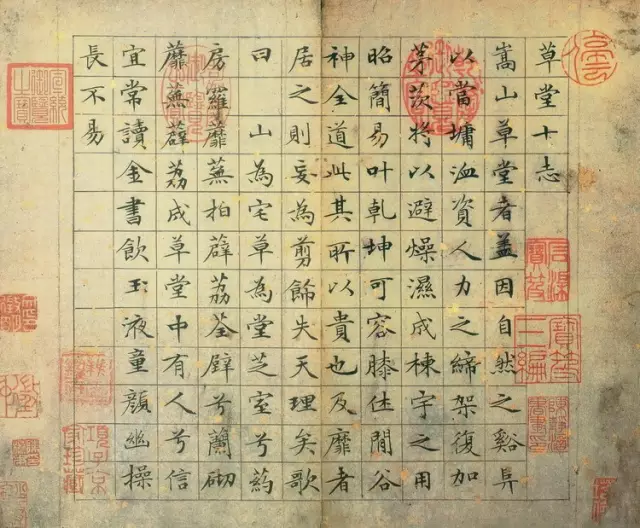 草堂十志
嵩山草堂者盖因自然之谿阜
以當墉洫資人力之締架復加
茅茨将以避燥濕成棟宇之用
昭簡易叶乾坤可容膝休閒谷
神全道此其所以貴也及靡者
居之則妄為剪飾失天理矣歌
曰 山為宅草為堂芝室兮葯
房羅蘼蕪拍薜荔荃壁兮蘭砌
蘼蕪薜荔成草堂中有人兮信
宜常讀金書飲玉液童顏幽操
長不易
宣統御覽之寶
項子京家珍藏